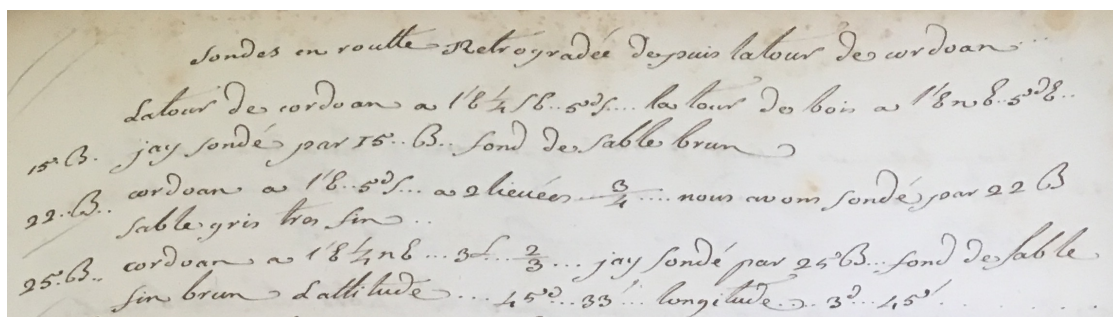 Sondes en routte Retrogradée depuis latour de cordoan
Latour de cordoan a l'E 1/4 SE.. 5d S... la tour de bois a l'E n E.. 5d E..
15.B. jay sondé par 15.. B.. fond de sable brun
22..B.. cordoan a l'E.. 5d S... a 2 lieuées 3/4 .... nous avons sondé par 22 B
sable gris tres fin ..
25.B.. cordoan a l'E 1/4 n E ... 3 L... 2/3 ... jay sondé par 25 B... fond de sable
fin brun Lattitude ... 45d.. 33' ... longitude ... 3d... 45'